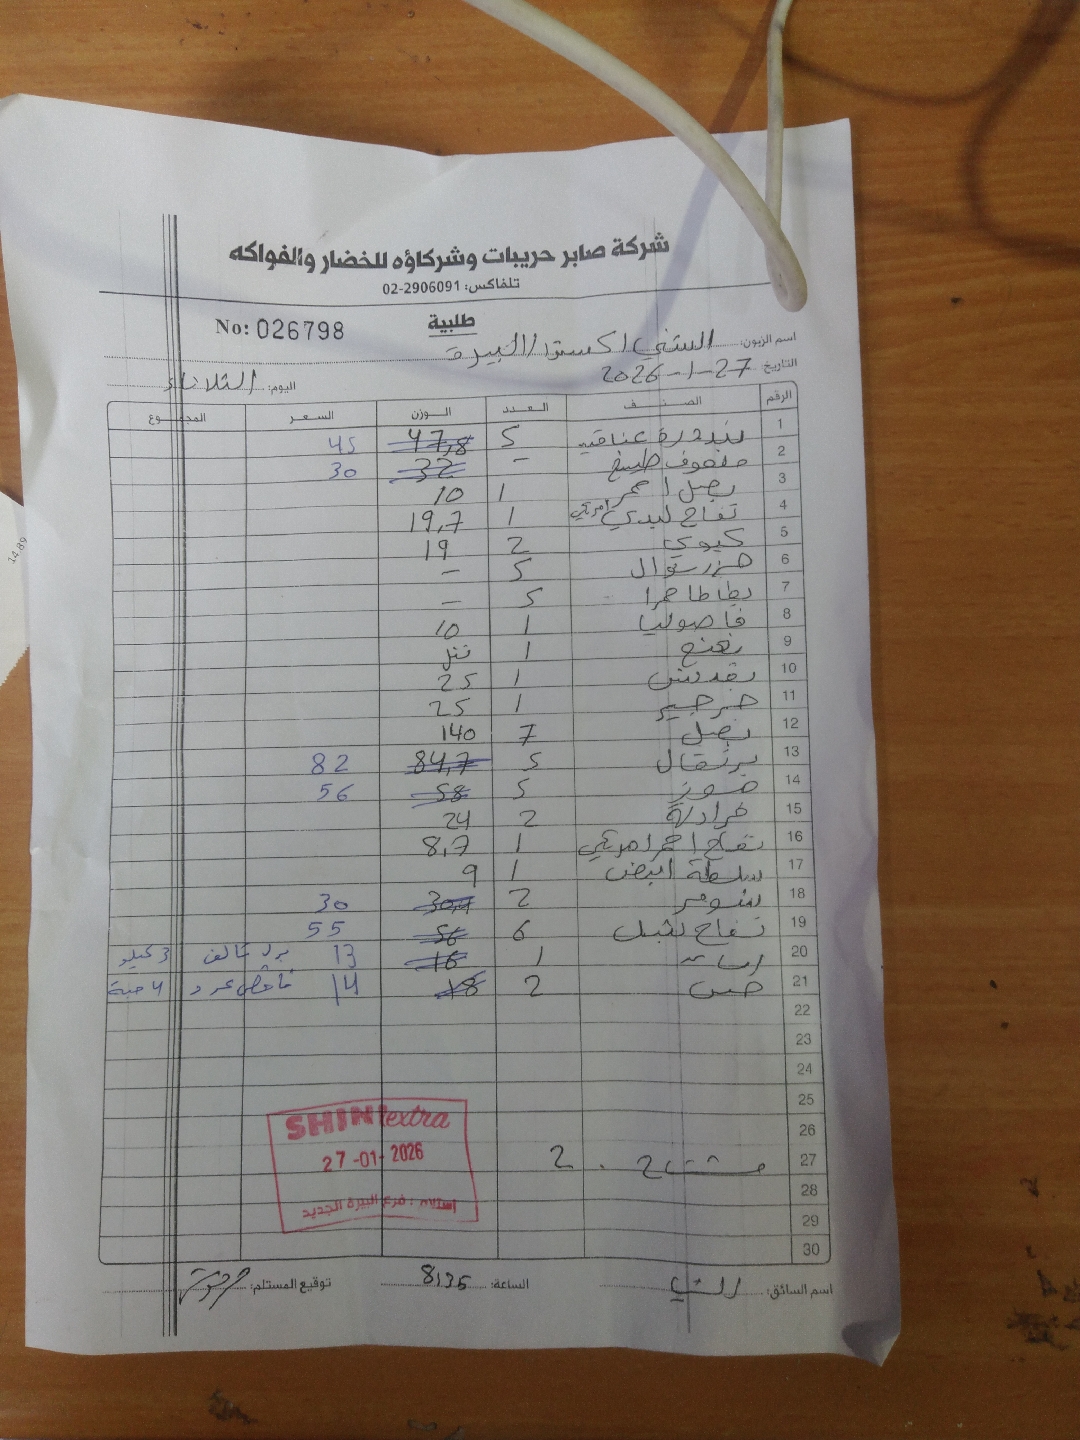 شركة صابر حريبات وشركاؤه للخضار والفواكه
تلفاكس: 02-2906091
طلبية
No: 026798
اسم الزبون: الشني اكسترا / البيرة
التاريخ 27-1-2026
اليوم: الثلاثاء
الرقم الصنف العدد الوزن السعر المجموع
1 بندورة عناقيد 5 47,8 45
2 ملفوف طبيخ - 32 30
3 بصل احمر 1 10
4 تفاح ليدي امريكي 1 19,7
5 كيوي 2 19
6 جزر شوال 5 -
7 بطاطا حمرا 5 -
8 فاصوليا 1 10
9 نعنع 1
10 بقدونس 1 25
11 جرجير 1 25
12 بصل 7 140
13 برتقال 5 84,7 82
14 موز 5 58 56
15 2 24
16 تفاح احمر امريكي 1 8,7
17 سلطة ابيض 1 9
18 شومر 2 30
19 تفاح 6 56 55
20 1 16 13 تالف 3 كيلو
21 خس 2 18 14 ناقص عدد 4 حبة
22
23
24
25
26
27 مشتاح 2 . 2
28
29
30
SHINI extra
27-01-2026
استلام: فرع البيرة الجديد
اسم السائق:
الساعة: 8:35
توقيع المستلم:
14.89